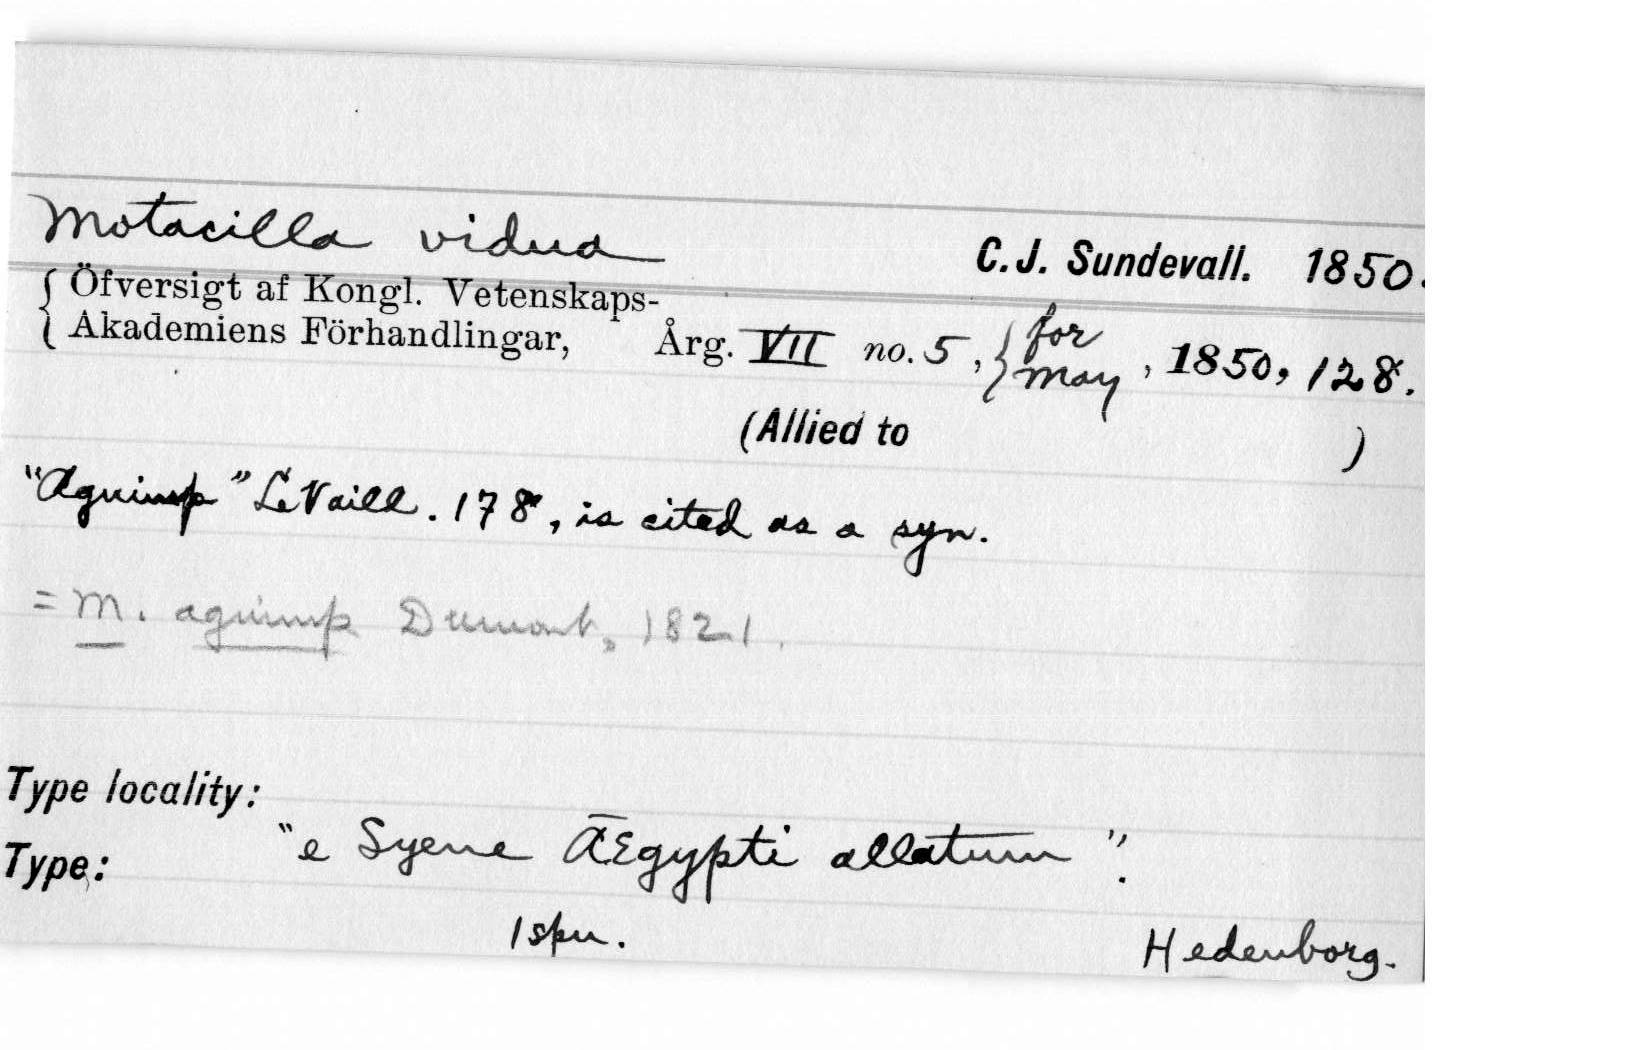 Motacilla vidua
C. J. Sundevall. 1850.
Öfversigt af Kongl. Vetenskaps-
Akademiens Förhandlingar, Årg. VII no. 5, for May, 1850, 128.
(Allied to )
"Aguimp" LeVaill. 178, is cited as a syn.
= M. aguimp Dumont, 1821.
Type locality:
"e Syene ÆEgypti allatum".
Type:
1 spn. Hedenborg.